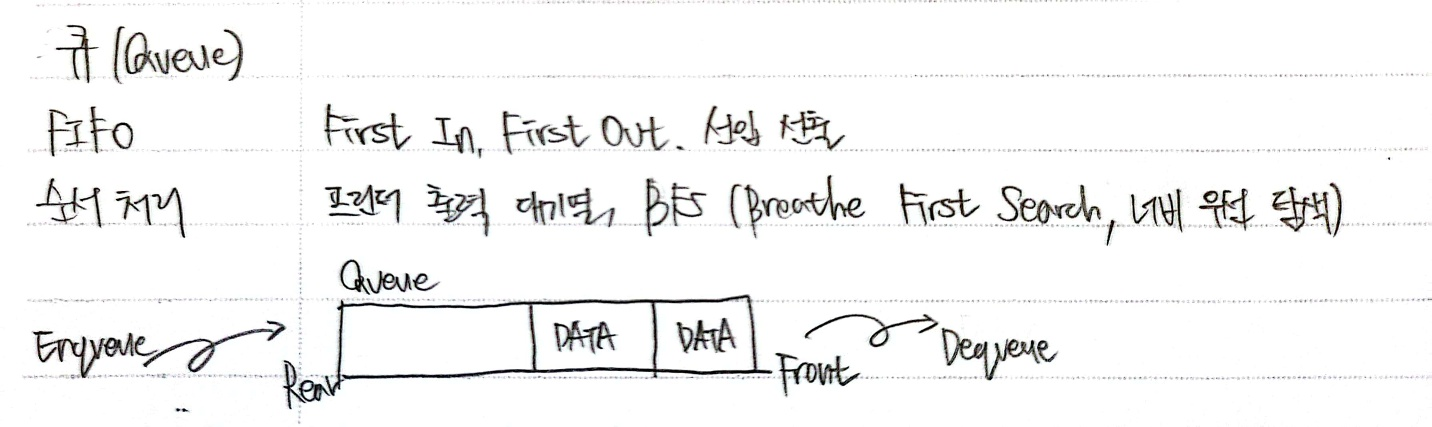 큐 (Queue)
FIFO First In, First Out. 선입 선출
순서 처리 프린터 출력 대기열, BFS (Breathe First Search, 너비 우선 탐색)
Queue
Enqueue DATA DATA Dequeue
Rear Front